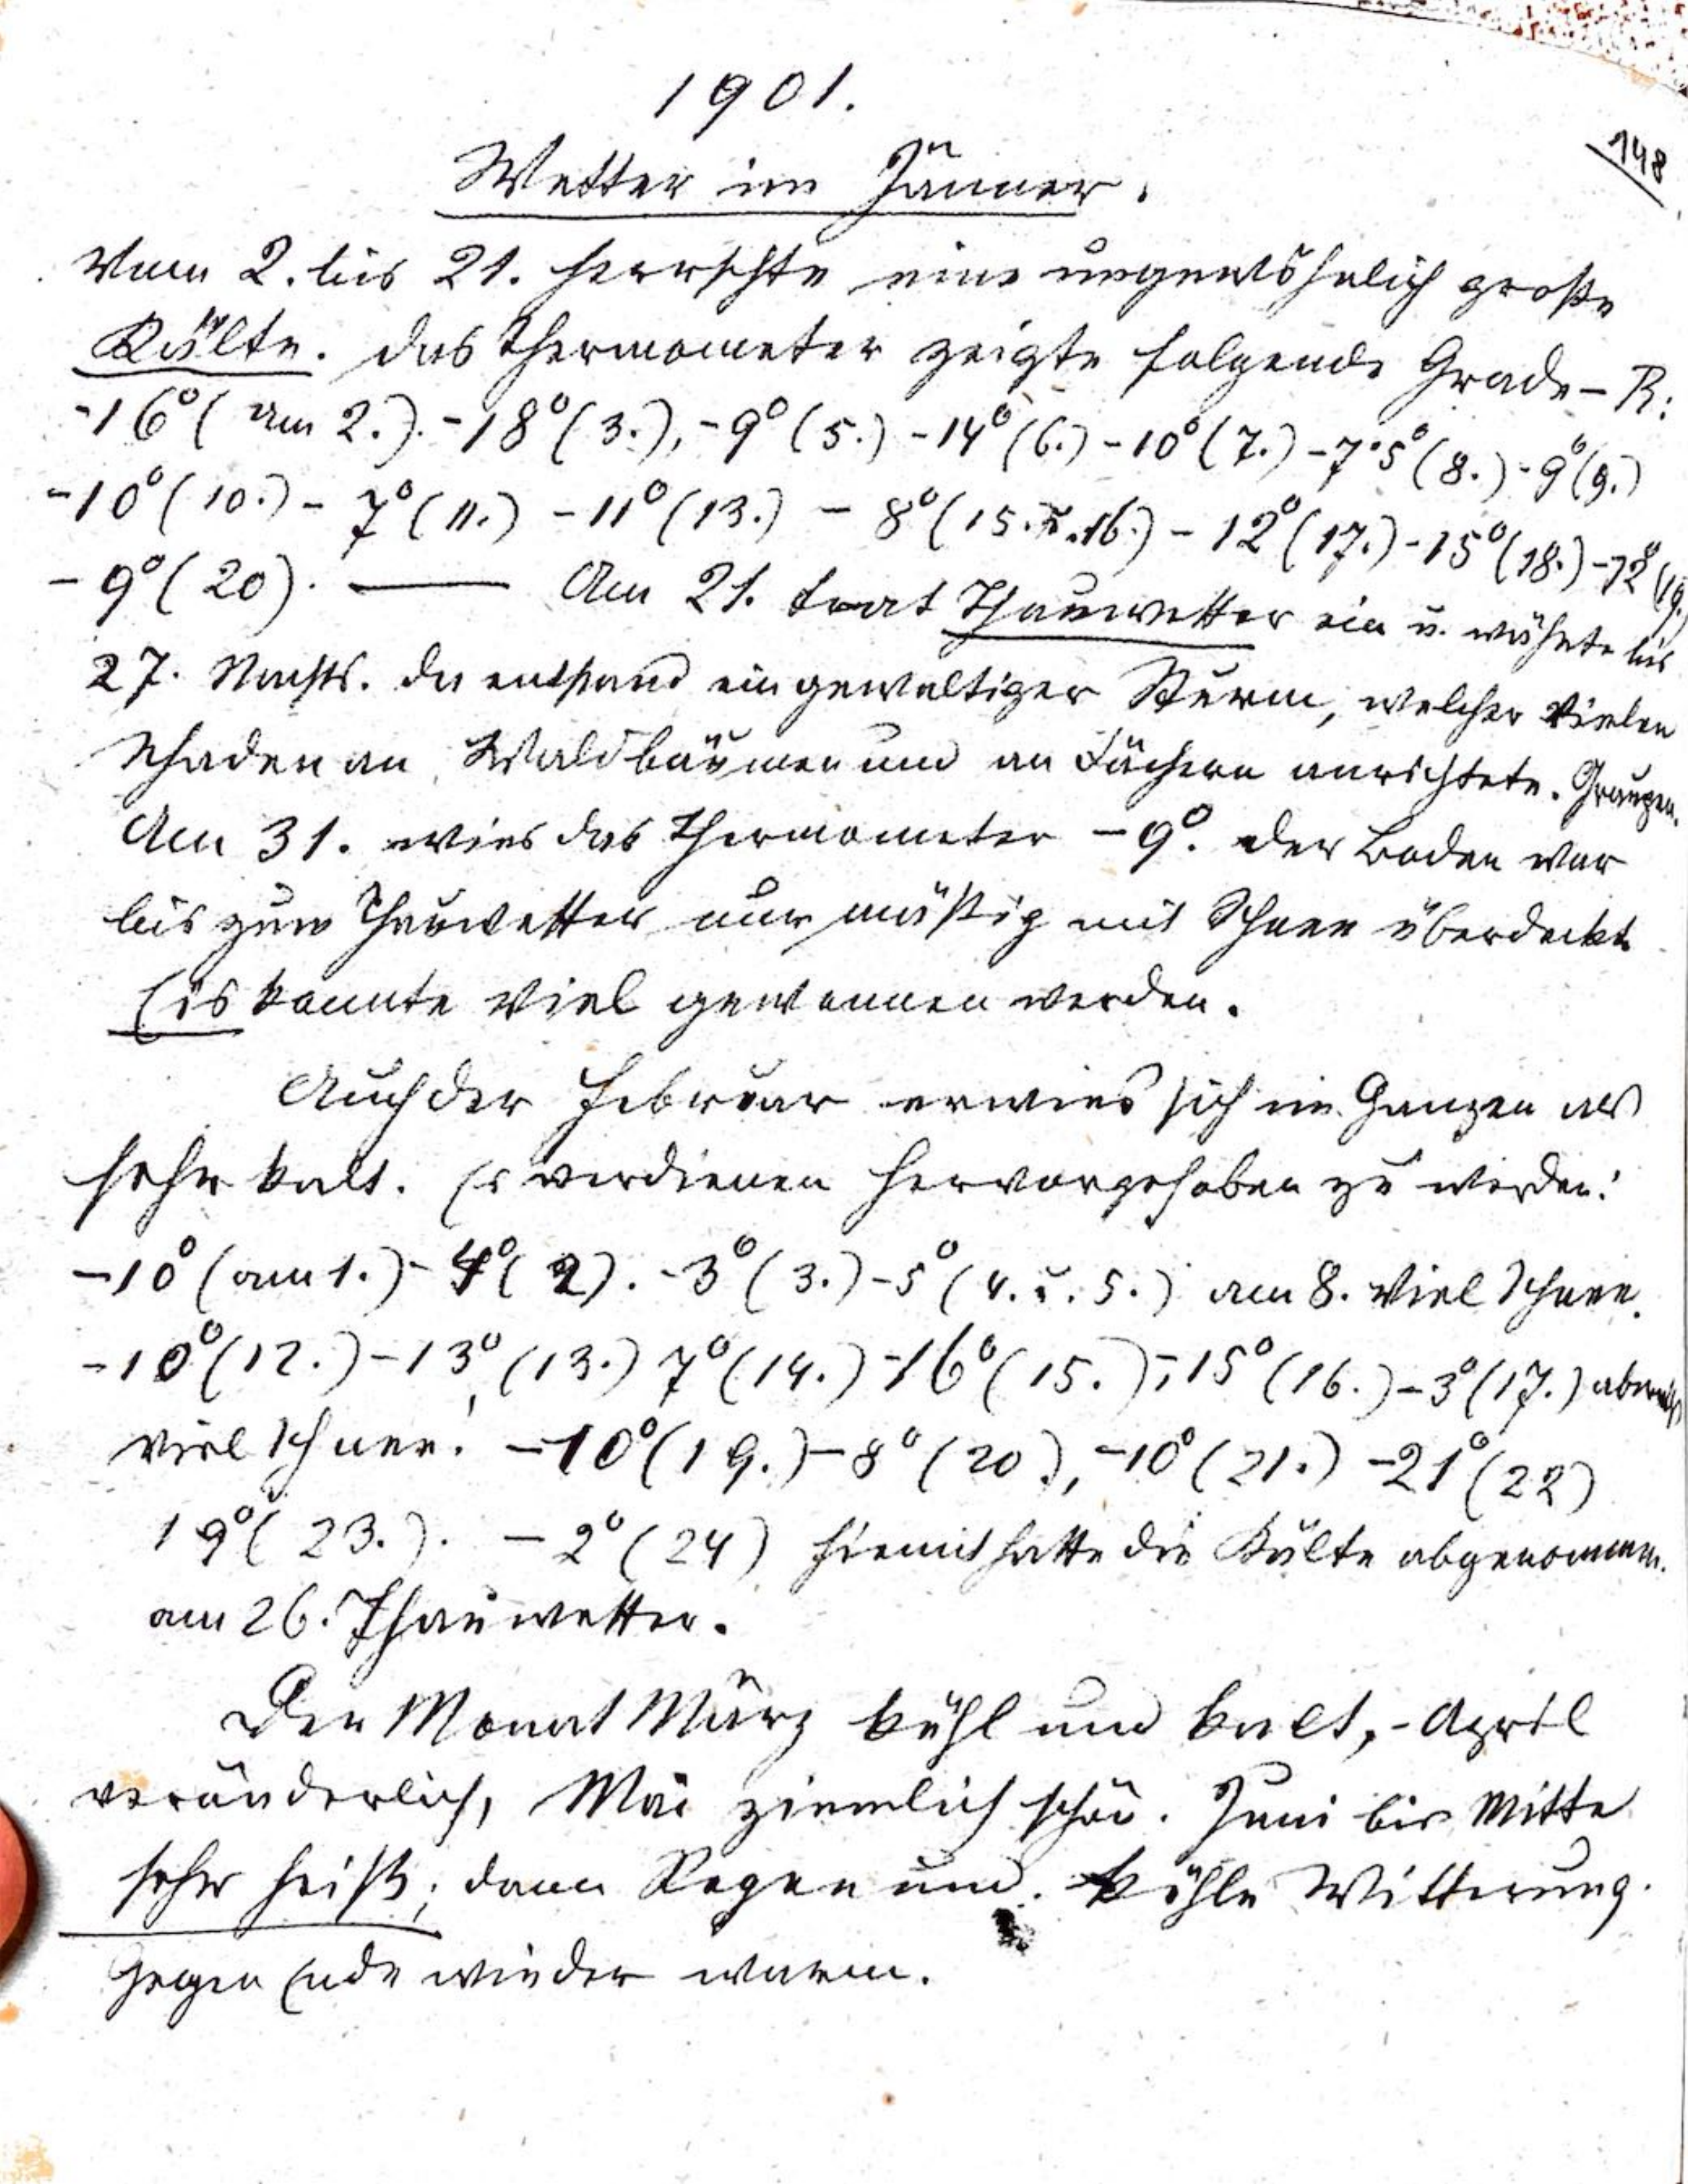 1901.
148
Wetter im Jänner.
Vom 2. bis 21. herrschte eine ungewöhnlich große
Kälte. Das Thermometer zeigte folgende Grade – R:
-16° (am 2.). -18° (3.), -9° (5.) -14° (6.) -10° (7.) -7·5° (8.) -9° (9.)
-10° (10.) - 7° (11.) -11° (13.) - 8° (15. u. 16.) - 12° (17.) -15° (18.) -12° (19.)
- 9° (20). — Am 21. trat Thauwetter ein u. währte bis
27. Nachts. Da entstand ein gewaltiger Sturm, welcher vielen
Schaden an Waldbäumen und an Dächern anrichtete. Graupen.
Am 31. wies das Thermometer -9°. Der Boden war
bis zum Thauwetter nur mäßig mit Schnee überdeckt
Eis konnte viel gewonnen werden.
Auch der Februar erwies sich im Ganzen als
sehr kalt. Es verdienen hervorgehoben zu werden:
-10° (am 1.) - 4° (2). -3° (3.) -5° (4. u. 5.) am 8. viel Schnee.
-10° (12.) -13° (13.) 7° (14.) -16° (15.), -15° (16.) -3° (17.) abermals
viel Schnee! -10° (19.) -8° (20.), -10° (21.) -21° (22)
19° (23.). - 2° (24) hiemit hatte die Kälte abgenommen.
am 26. Thauwetter.
Der Monat März kühl und kalt, - April
veränderlich, Mai ziemlich schön. Juni bis Mitte
sehr heiß; dann Regen und. kühle Witterung.
Gegen Ende wieder warm.